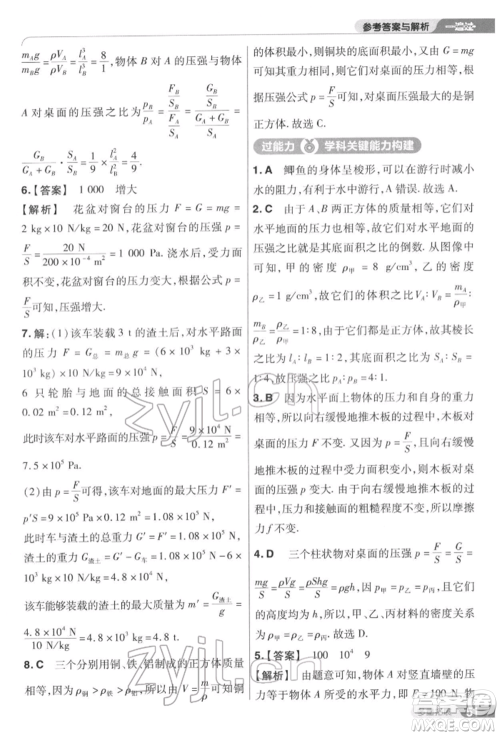 参考答案与解析
$\frac{m_Ag}{m_Bg}=\frac{\rho V_A}{\rho V_B}=\frac{l_A^3}{l_B^3}=\frac{8}{1}$，物体 B 对 A 的压强与物体
A 对桌面的压强之比为 $\frac{p_B}{p_A}=\frac{\frac{F_B}{S_B}}{\frac{F_A}{S_A}}=$
$\frac{G_B}{G_A+G_B}\cdot\frac{S_A}{S_B}=\frac{1}{9}\times\frac{l_A^2}{l_B^2}=\frac{4}{9}$.
6.【答案】 1 000 增大
【解析】 花盆对窗台的压力 F = G = mg =
2 kg×10 N/kg=20 N，花盆对窗台的压强 p=
$\frac{F}{S}=\frac{20\ N}{200×10^{-4}\ m^2}$=1 000 Pa. 浇水后，受力面
积不变，花盆对窗台的压力变大，由公式 p=
$\frac{F}{S}$可知，压强增大.
7.解：(1) 该车装载 3 t 的渣土后，对水平路面
的压力 F = G总 = m总g = (6 × 10³ kg + 3 ×
10³ kg)×10 N/kg=9×10⁴ N，
6 只轮胎与地面的总接触面积 S = 6 ×
0.02 m²=0.12 m²，
此时该车对水平路面的压强 $p=\frac{F}{S}=\frac{9×10^4\ N}{0.12\ m^2}=$
7.5×10⁵ Pa.
(2) 由 $p=\frac{F}{S}$可得，该车对地面的最大压力 F′=
p′S=9×10⁵ Pa×0.12 m²=1.08×10⁵ N，
此时车与渣土的总重力 G′=F′=1.08×10⁵ N，
渣土的重力 G渣土=G′-G车=1.08×10⁵ N-6×
10³ kg×10 N/kg=4.8×10⁴ N，
该车能够装载的渣土最大质量 $m′=\frac{G_{渣土}}{g}=$
$\frac{4.8×10^4\ N}{10\ N/kg}$=4.8×10³ kg.
8. C 三个分别用铜、铁、铝制成的正方体质量
相等，因为 ρ铜>ρ铁>ρ铝，由 $\rho=\frac{m}{V}$可知铜块
的体积最小，则铜块的底面积最小，由 G = mg
知其重力相同，对桌面的压力相同，
根据压强公式可知，对桌面压强最大的是铜
正方体. 故选 C.
过能力 学科关键能力构建
1. A 鲫鱼的身体呈梭形，可以在游行时减小
水的阻力，有利于在水中游行，A 错误. 故选 A.
2. C 由于 A、B 两正方体的质量相等，则它们
对水平地面的压力相等，故它们对水平地面的
压强之比等于受力面积的反比. 由图像数据可
知，甲的密度为 ρ甲 = 8 g/cm³，乙的密度为
ρ乙=1 g/cm³，故它们的体积之比 $V_A:V_B=\frac{m_A}{\rho_甲}:$
$\frac{m_B}{\rho_乙}=\frac{\rho_乙}{\rho_甲}$=1∶8，故它们的棱长
之比为 l_A∶l_B=1∶2，底面积之比为 S_A∶S_B=
1∶4，故压强之比为 p_甲∶p_乙=4∶1.
3. B 因为水平面上物体的压力和重力相等，
所以向右缓慢地推木板的过程中，木板对桌面
的压力 F 不变. 因为木板在向右缓慢地推动
的过程中受力面积变小，压力不变，根据 $p=\frac{F}{S}$
可知压强 p 变大. 向右缓慢推木板的过程中，
压力和接触面粗糙程度都不变，所以，摩擦
力 f 不变.
4. D 三个柱状物对桌面的压强 $p=\frac{F}{S}=\frac{G}{S}=$
$\frac{mg}{S}=\frac{\rho Vg}{S}=\frac{\rho Shg}{S}=\rho gh$，因为 p甲=p乙=p丙，且它们
的高度均为 h，所以甲、乙、丙材料的密度一定
相等. 故选 D.
5.【答案】 100 10⁴ 9
【解析】 由题意可知，物体 A 对竖直墙壁的压
力等于物体 A 所受的水平力，即 F=100 N，物
zyjl.cn
zyjl.cn